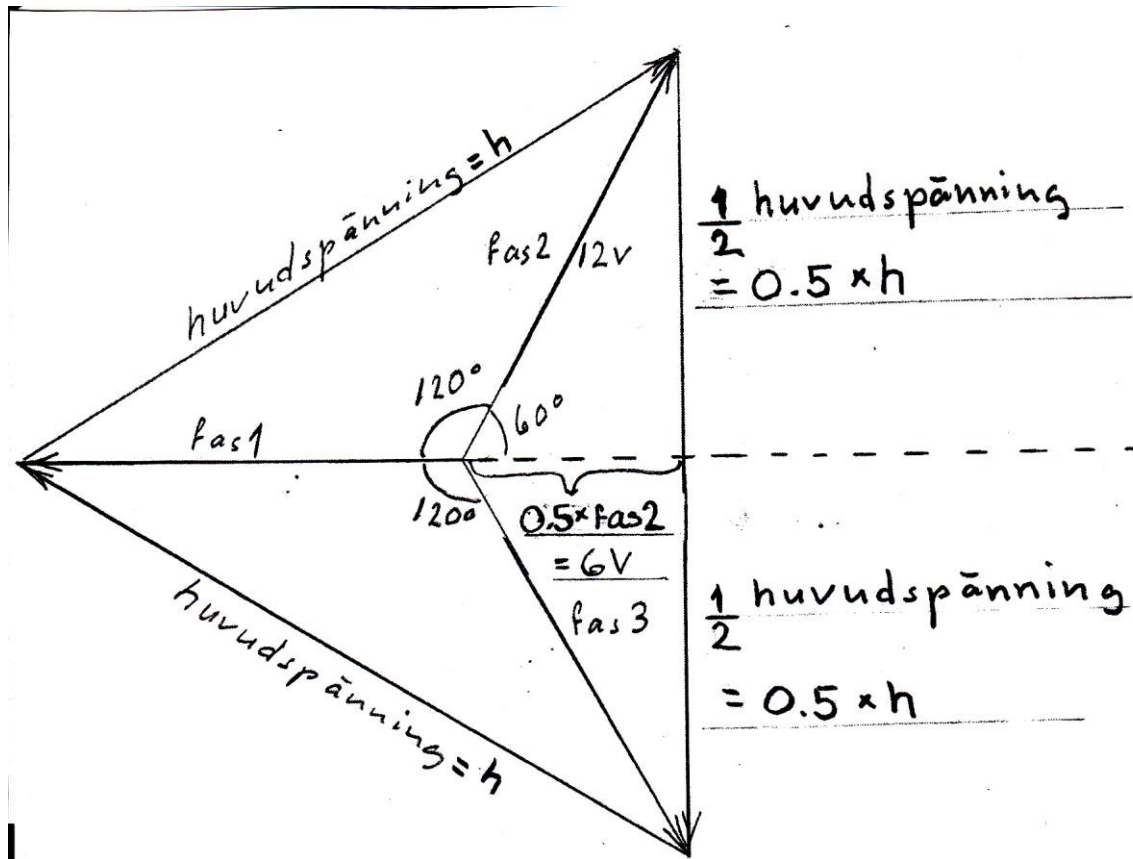 huvudspänning = h
fas2
12v
1/2 huvudspänning
= 0.5 × h
120°
60°
fas1
120°
0.5×fas2
= 6V
fas 3
huvudspänning = h
1/2 huvudspänning
= 0.5 × h